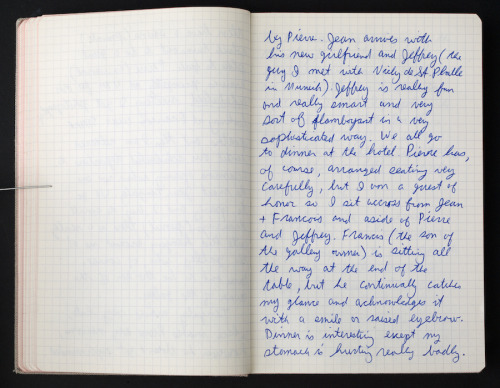 by Pierre. Jean arrives with
his new girlfriend and Jeffrey (the
guy I met with Vicky de St. Phalle
in Munich). Jeffrey is really fun
and really smart and very
sort of flamboyant in a very
sophisticated way. We all go
to dinner at the hotel. Pierre has,
of course, arranged seating very
carefully, but I am a guest of
honor so I sit accross from Jean
+ Francois and aside of Pierre
and Jeffrey. Francis (the son of
the gallery owner) is sitting all
the way at the end of the
table, but he continually catches
my glance and acknowledges it
with a smile or raised eyebrow.
Dinner is interesting except my
stomach is hurting really badly.